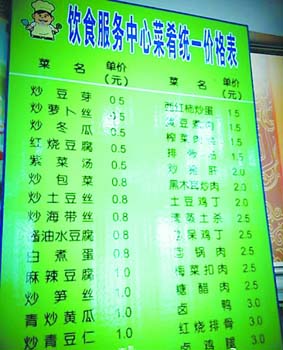 饮食服务中心菜肴统一价格表
菜名 单价(元)
炒豆芽 0.5
炒萝卜丝 0.5
炒冬瓜 0.5
红烧豆腐 0.5
紫菜汤 0.5
炒包菜 0.8
炒土豆丝 0.8
炒海带丝 0.8
酱油水豆腐 0.8
白煮蛋 0.8
麻辣豆腐 1.0
炒笋丝 1.0
青炒黄瓜 1.0
青炒豆仁 1.0
菜名 单价(元)
西红柿炒蛋 1.5
1.5
榨菜肉 1.5
排 1.5
炒 肝 2.0
黑木耳炒肉 2.0
土豆鸡丁 2.5
清蒸土 2.5
保鸡丁 2.5
回锅肉 2.5
梅菜扣肉 2.5
糖醋肉 2.5
卤鸭 3.0
红烧排骨 3.0
卤鸡腿 3.0